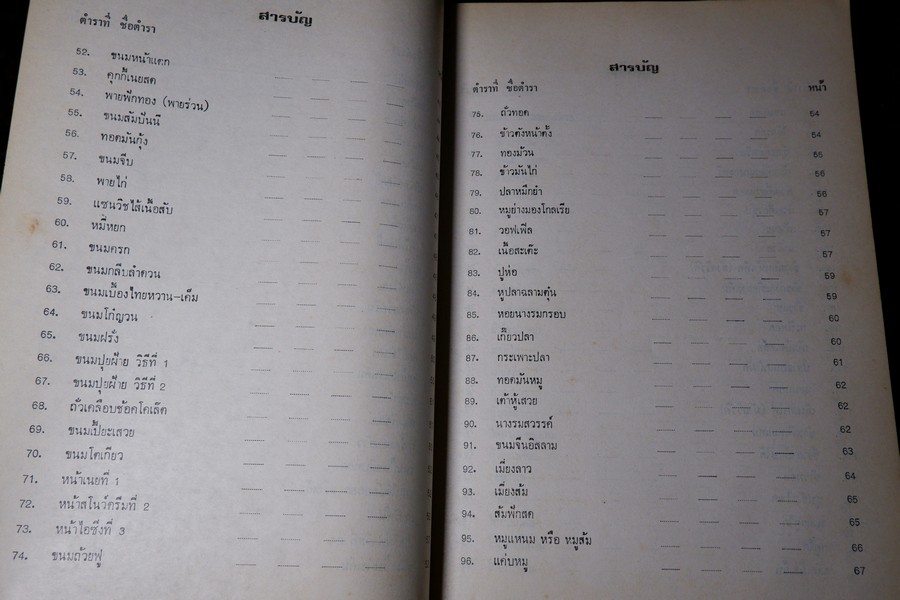 สารบัญ
ตำราที่ ชื่อตำรา
52. ขนมหน้าแตก
53. คุกกี้เนยสด
54. พายฟักทอง (พายร่วน)
55. ขนมสัมปันนี
56. ทอดมันกุ้ง
57. ขนมจีบ
58. พายไก่
59. แซนวิชไส้เนื้อสับ
60. หมี่หยก
61. ขนมครก
62. ขนมกลีบลำดวน
63. ขนมเบื้องไทยหวาน-เค็ม
64. ขนมโก๋ญวน
65. ขนมฝรั่ง
66. ขนมปุยฝ้าย วิธีที่ 1
67. ขนมปุยฝ้าย วิธีที่ 2
68. ถั่วเคลือบช้อคโคเล็ต
69. ขนมเปี๊ยะเสวย
70. ขนมโตเกียว
71. หน้าเนยที่ 1
72. หน้าสโนว์ครีมที่ 2
73. หน้าไอซิ่งที่ 3
74. ขนมถ้วยฟู
สารบัญ
ตำราที่ ชื่อตำรา หน้า
75. ถั่วทอด 54
76. ข้าวตังหน้าตั้ง 54
77. ทองม้วน 55
78. ข้าวมันไก่ 56
79. ปลาหมึกยำ 56
80. หมูย่างมองโกลเรีย 57
81. วอฟเฟิล 57
82. เนื้อสะเต๊ะ 57
83. ปูห่อ 59
84. หูปลาฉลามตุ๋น 59
85. หอยนางรมกรอบ 60
86. เกี้ยวปลา 60
87. กระเพาะปลา 61
88. ทอดมันหมู 62
89. เต้าหู้เสวย 62
90. นางรมสวรรค์ 62
91. ขนมจีนอิสลาม 63
92. เมี่ยงลาว 64
93. เมี่ยงส้ม 65
94. ส้มฟักสด 65
95. หมูแหนม หรือ หมูส้ม 66
96. แค่บหมู 67